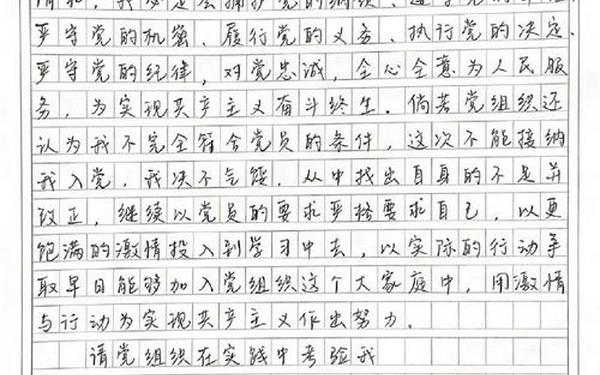 我必定会拥护党的纲领、遵守党的章程
严守党的机密、履行党的义务、执行党的决定、
严守党的纪律，对党忠诚，全心全意为人民服
务，为实现共产主义奋斗终生．倘若党组织还
认为我不完全符合党员的条件，这次不能接纳
我入党，我决不气馁．从中找出自身的不足并
改正，继续以党员的要求严格要求自己，以更
饱满的激情投入到学习中去，以实际的行动争
取早日能够加入党组织这个大家庭中，用激情
与行动为实现共产主义作出努力．
请党组织在实践中考验我